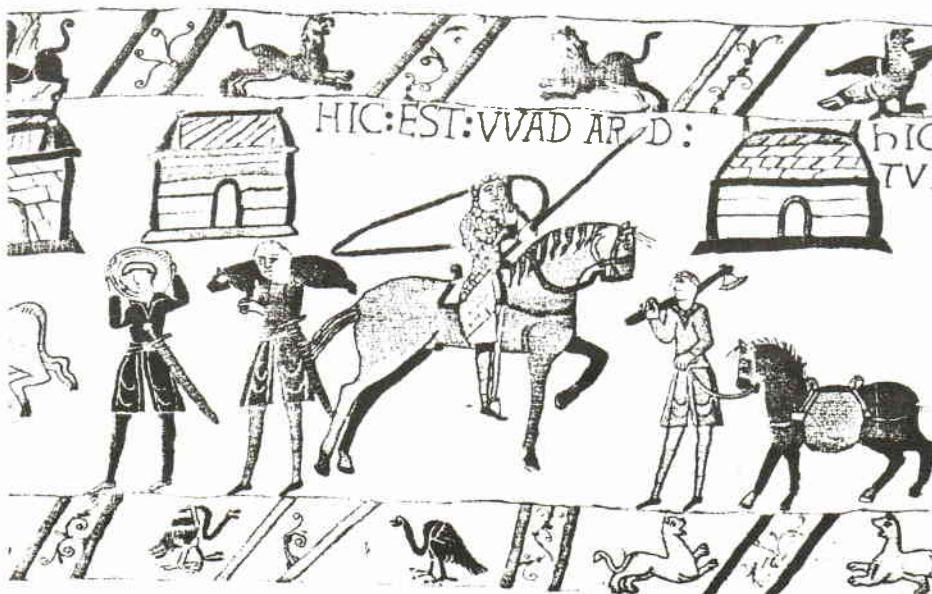 HIC:EST:VVAD AR D:
hIC
TV